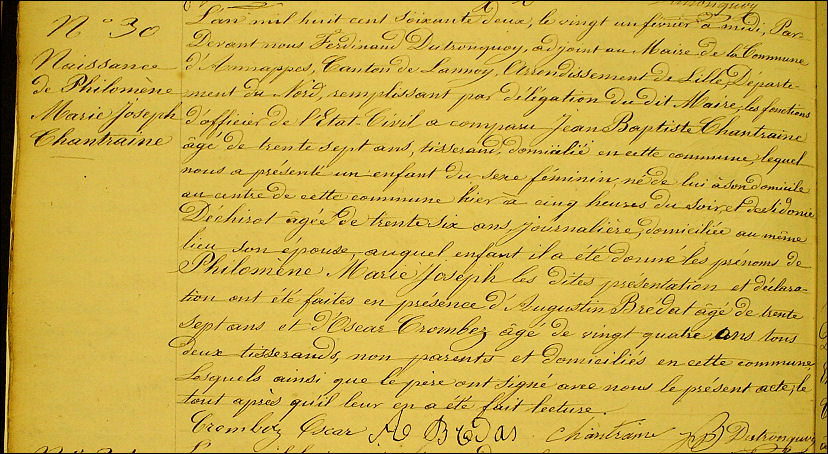 N° 30
Naissance
de Philomène
Marie Joseph
Chantraine
L'an mil huit cent soixante deux, le vingt un février à midi, Par-
Devant nous Ferdinand Dutronquoy, adjoint au Maire de la Commune
d'Annappes, Canton de Lannoy, Arrondissement de Lille, Départe-
ment du Nord, remplissant par délégation du dit Maire, les fonctions
d'officier de l'Etat Civil a comparu Jean Baptiste Chantraine
âgé de trente sept ans, tisserand, domicilié en cette commune, lequel
nous a présenté un enfant du sexe féminin, né de lui à son domicile
au centre de cette commune hier à cinq heures du soir, et de Sidonie
Déchirot âgée de trente six ans, journalière, domiciliée au même
lieu son épouse, auquel enfant il a été donné les prénoms de
Philomène Marie Joseph les dites présentation et déclara-
tion ont été faites en présence d'Augustin Brédat âgé de trente
sept ans et d'Oscar Crombez âgé de vingt quatre ans tous
deux tisserands, non parents et domiciliés en cette commune,
Lesquels ainsi que le père ont signé avec nous le présent acte, le
tout après qu'il leur en a été fait lecture.
Crombez Oscar A Brédas Chantraine Dutronquoy